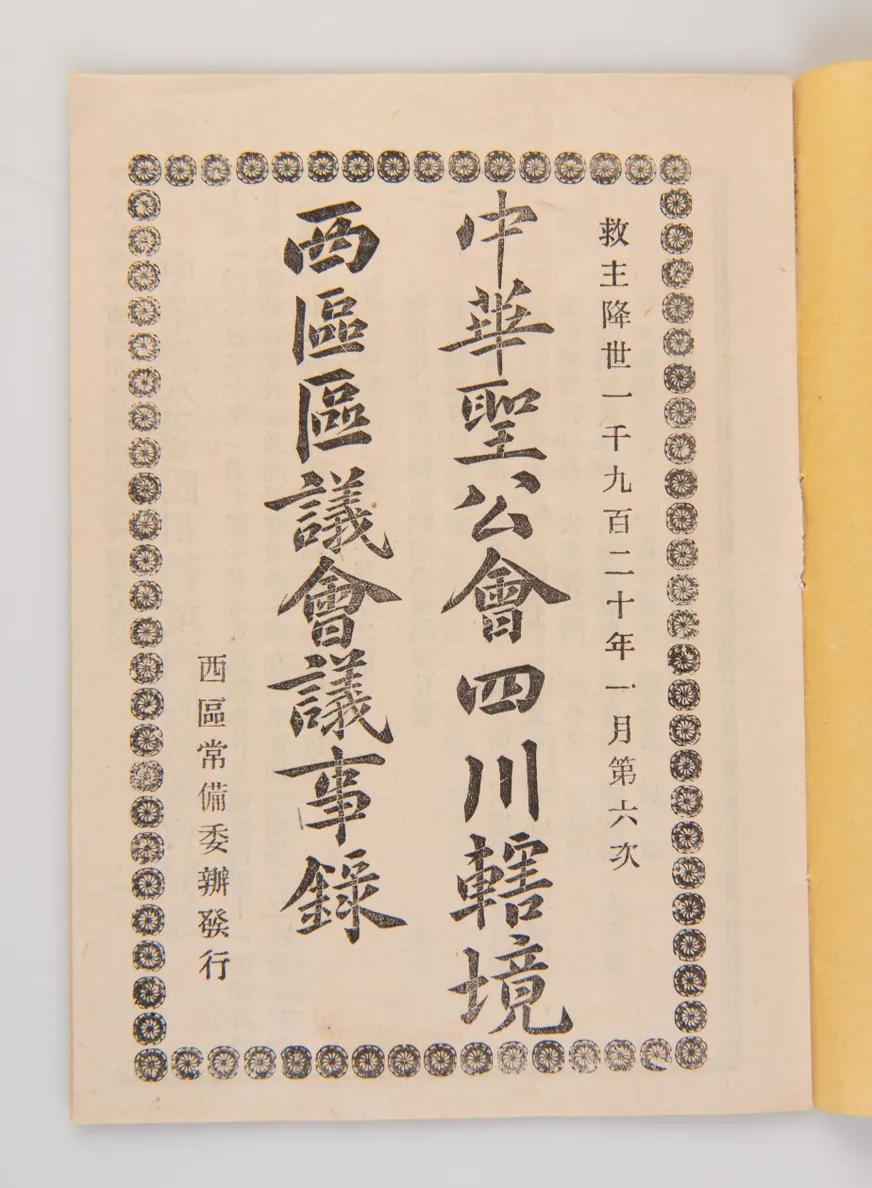 救主降世一千九百二十年一月第六次
中華聖公會四川轄境
西區區議會議事錄
西區常備委辦發行